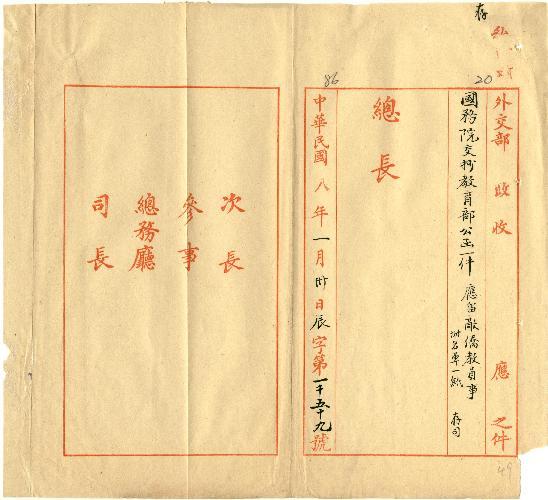 存
20
外交部 政收 應 之件
國務院交抄教育部公函一件 應留敵僑教員事
附名單一紙 存司
總長
86
中華民國八年一月卅日辰字第一千五十九號
次長
參事
總務廳
司長
49